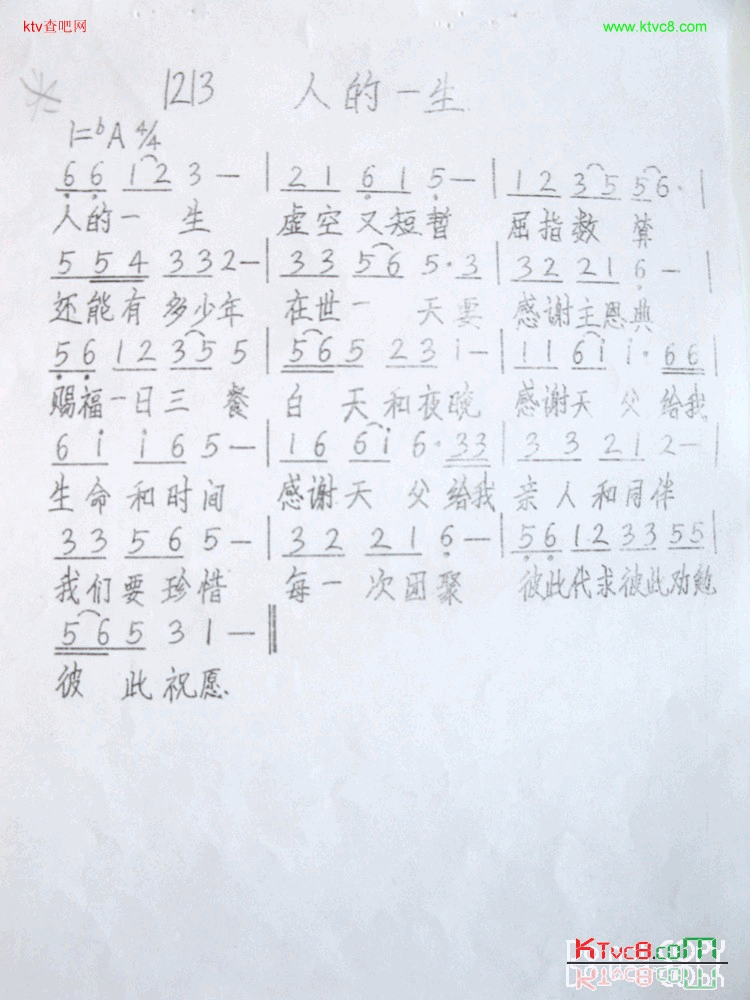 ktv查吧网
www.ktvc8.com
1213 人的一生
1=♭A 4/4
6̣ 6̣ 1 2 3 — | 2 1 6̣ 1 5̣ — | 1 2 3 5 5 6 · |
人的一 生 虚空又短暂 屈指数 算
5 5 4 3 3 2 — | 3 3 5 6 5 · 3 | 3 2 2 1 6̣ — |
还能有多少年 在世一 天要 感谢主恩典
5̣ 6̣ 1 2 3 5 5 | 5 6 5 2 3 1 — | 1 1 6 i i · 6 6 |
赐福一日三 餐 白 天和夜晚 感谢天 父给我
6 i i 6 5 — | 1 6 6 i 6 · 3 3 | 3 3 2 1 2 — |
生命和时间 感谢天 父给我 亲人和同伴
3 3 5 6 5 — | 3 2 2 1 6̣ — | 5̣ 6̣ 1 2 3 3 5 5 |
我们要珍惜 每一次团聚 彼此代求彼此劝勉
5 6 5 3 1 — ‖
彼 此祝愿
KTvc8.com